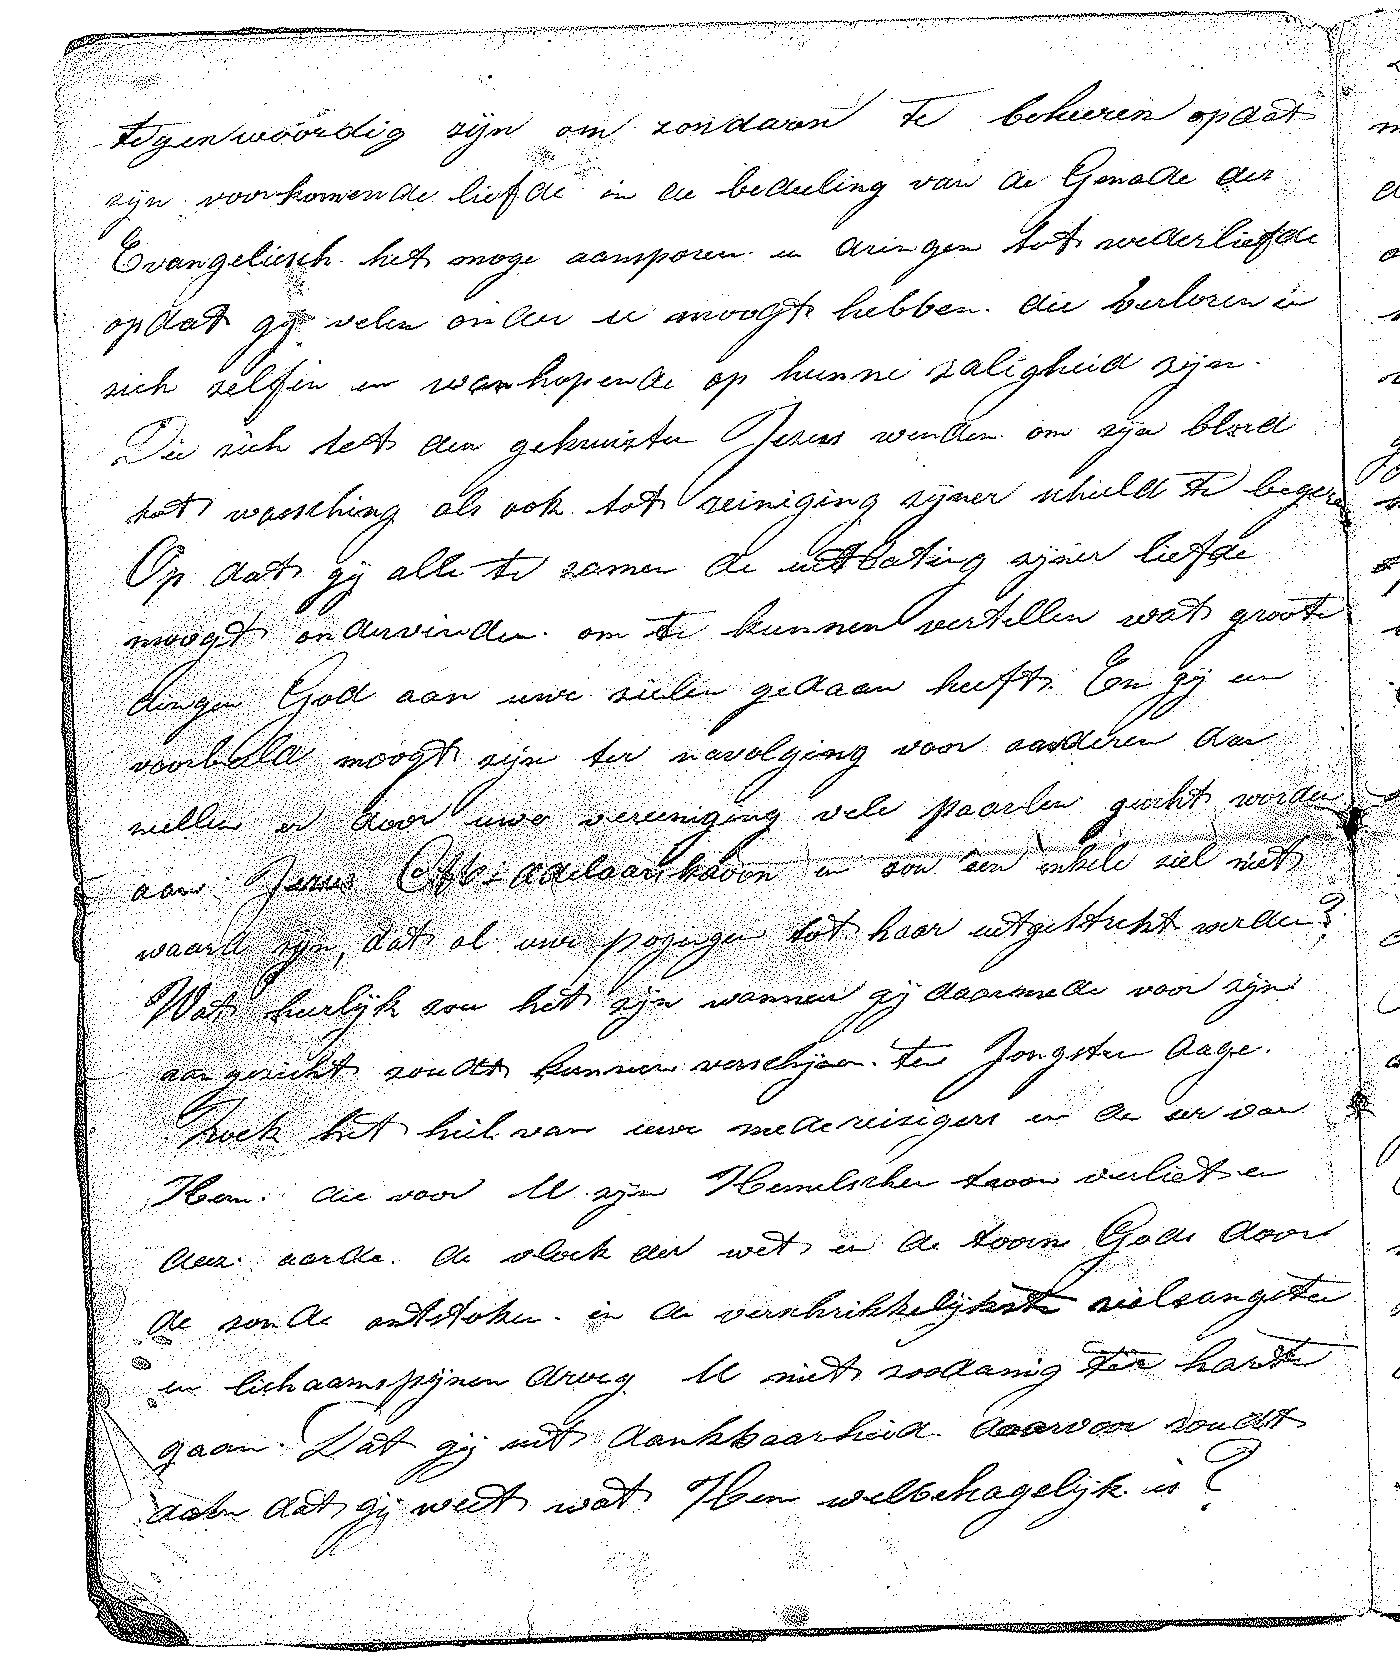 tegenwoordig zijn om zondaren te bekeeren opdat
zijn voorkomende liefde in de bedeeling van de Genade des
Evangeliesch het moge aansporen en dringen tot wederliefde
opdat gij velen onder u moogt hebben die verloren in
zich zelfen en wanhopende op hunne zaligheid zijn.
Die zich tot den gekruisten Jezus wenden om zijn bloed
tot wassching als ook tot reiniging zijner schuld te begere
Op dat gij alle te samen de uitlating zijner liefde
moogt ondervinden om te kunnen vertellen wat groote
dingen God aan uwe zielen gedaan heeft. En gij een
voorbeeld moogt zijn ter navolging voor anderen dan
zullen er door uwe vereeniging vele paarlen gehecht worden
aan Jezus kroon en zou een enkele ziel niet
waard zijn, dat al uwe pogingen tot haar uitgestrekt werden?
Wat heerlijk zou het zijn wanneer gij daarmede voor zijn
aangezicht zoudt kunnen verschijnen ten Jongsten dage.
Zoek het heil van uwe medereizigers en de eer van
Hem die voor U zijn Hemelschen troon verliet en
deez aarde de vloek der wet en de toorn Gods door
de zonde ontstoken in de verschrikkelijkste zielsangsten
en lichaamspijnen droeg U niet zoodanig ter harte
gaan. Dat gij uit dankbaarheid daarvoor zoudt
doen dat gij weet wat Hem welbehagelijk is?